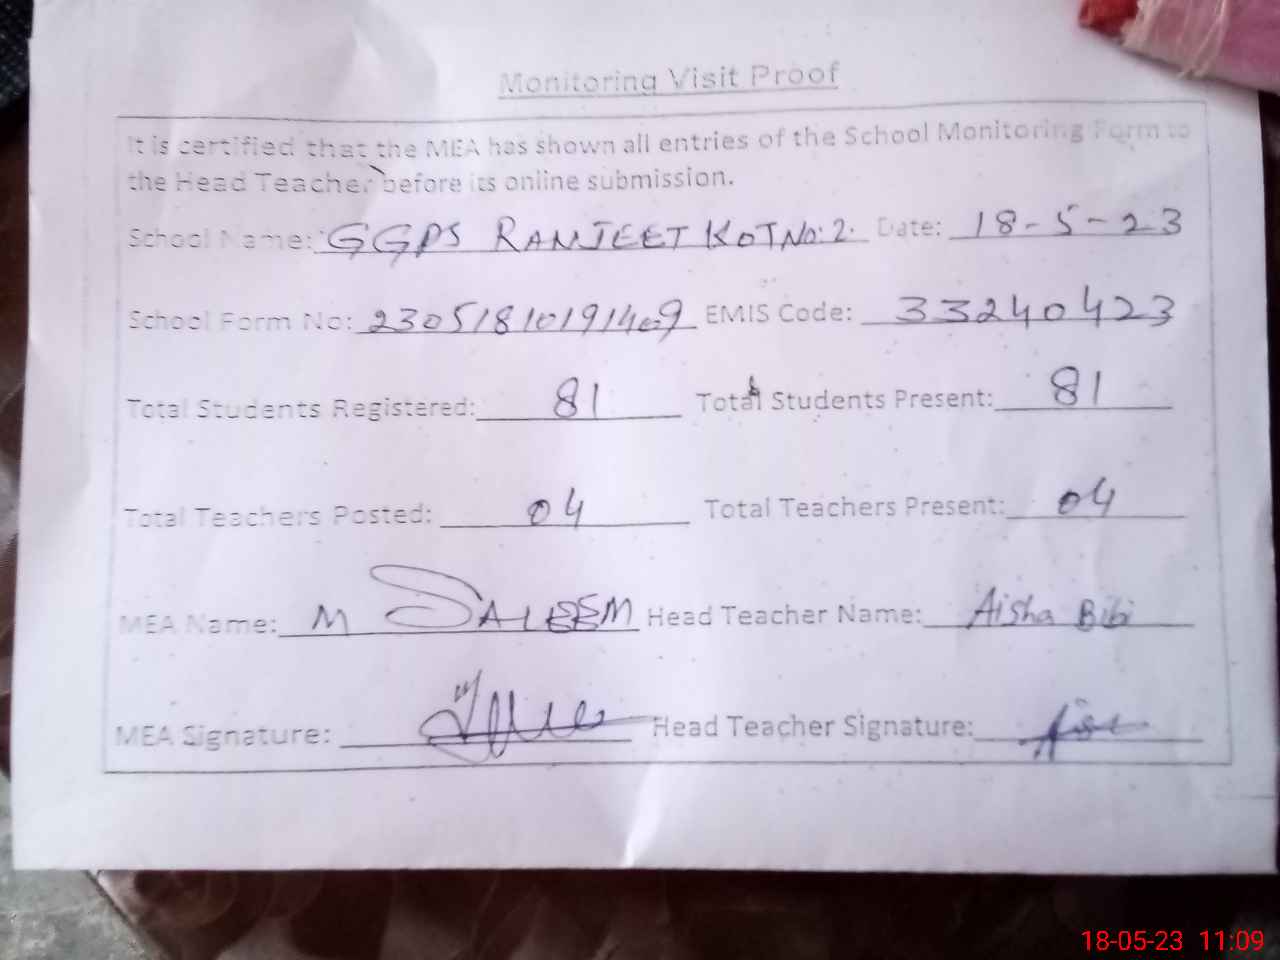 Monitoring Visit Proof
It is certified that the MEA has shown all entries of the School Monitoring Form to
the Head Teacher before its online submission.
School Name: GGPS RANJEET KOT No: 2. Date: 18-5-23
School Form No: EMIS Code: 33240423
Total Students Registered: 81 Total Students Present: 81
Total Teachers Posted: 04 Total Teachers Present: 04
MEA Name: M SALEEM Head Teacher Name: Aisha Bibi
MEA Signature: Head Teacher Signature:
18-05-23 11:09